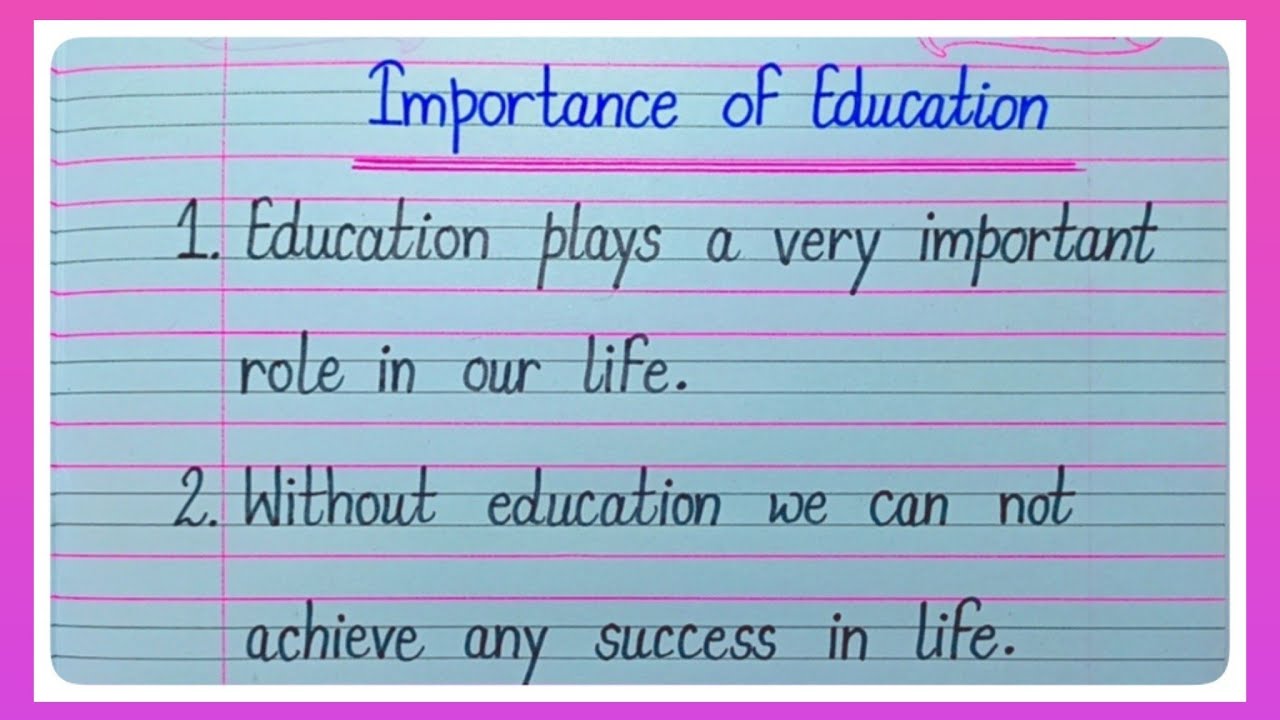 Importance of Education
1. Education plays a very important
role in our life.
2. Without education we can not
achieve any success in life.